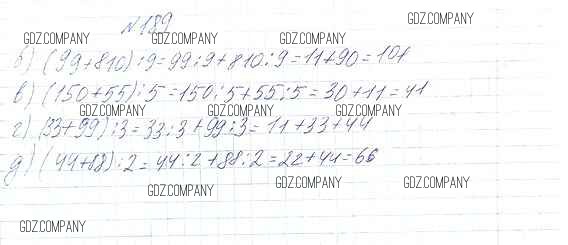 GDZ.COMPANY
№189
GDZ.COMPANY GDZ.COMPANY GDZ.COMPANY
б) (99+810):9=99:9+810:9=11+90=101
в) (150+55):5=150:5+55:5=30+11=41
GDZ.COMPANY GDZ.COMPANY GDZ.COMPANY
г) (33+99):3=33:3+99:3=11+33+44
д) (44+88):2=44:2+88:2=22+44=66
GDZ.COMPANY GDZ.COMPANY GDZ.COMPANY
GDZ.COMPANY